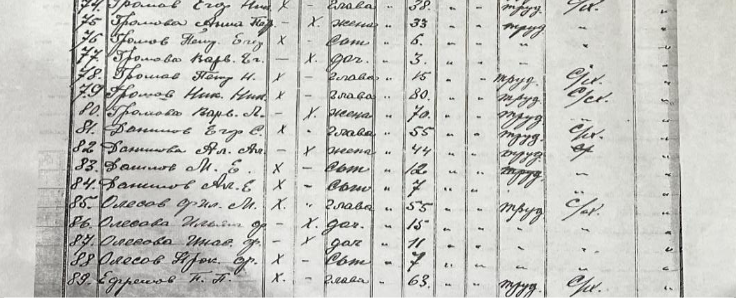 74 Громов Егор Ник. X - глава " 38. " " труд. С/х.
75 Громова Анна Вар. - X. жена " 33 " " труд "
76 Громов Петр Егор X - Сын " 6. " " " "
77. Громова Варв. Ег. - X. доч. " 3. " " " "
78. Громов Петр Н. X - глава " 15 " " труд. С/х.
79 Громов Ник. Ник. X - глава " 80. " " труд. С/сх.
80. Громова Варв. М. - X. жена " 70. " " труд. "
81. Данилов Егор С. X - глава " 55 " " труд. С/х.
82 Данилова Ал. Ал. - X жена " 44 " " труд.
83. Данилов М. Е. X - Сын " 12 " " труд. "
84. Данилов Ал. Е. X - Сын " 7 " " " "
85 Олесов Фил. М. X " глава " 55 " " труд С/х.
86. Олесова Ф - X. доч. " 15 " " " "
87. Олесова Ф. - X доч " 11 " " " "
88 Олесов Прок. Ф. X - Сын " 7 " " " "
89. Ефремов П. П. X. - глава " 63. " " труд С/х.